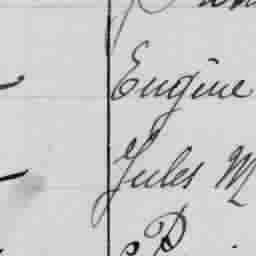 Eugène
Jules M